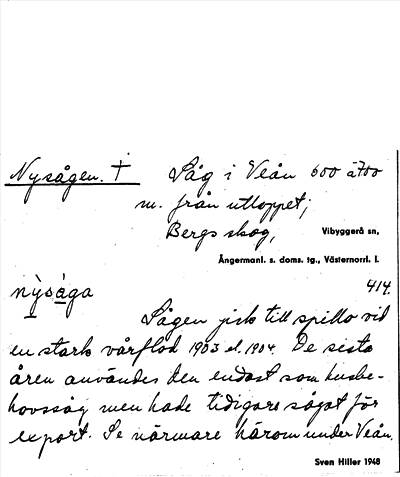 Nysågen. † Såg i Veån 600 à 700
m. från utloppet;
Bergs skog, Vibyggerå sn,
Ångermanl. s. doms. tg., Västernorrl. l.
nỳsàga 414.
Sågen gick till spillo vid
en stark vårflod 1903 el. 1904. De sista
åren användes den endast som husbe-
hovssåg men hade tidigare sågat för
export. Se närmare härom under Veån.
Sven Hiller 1948